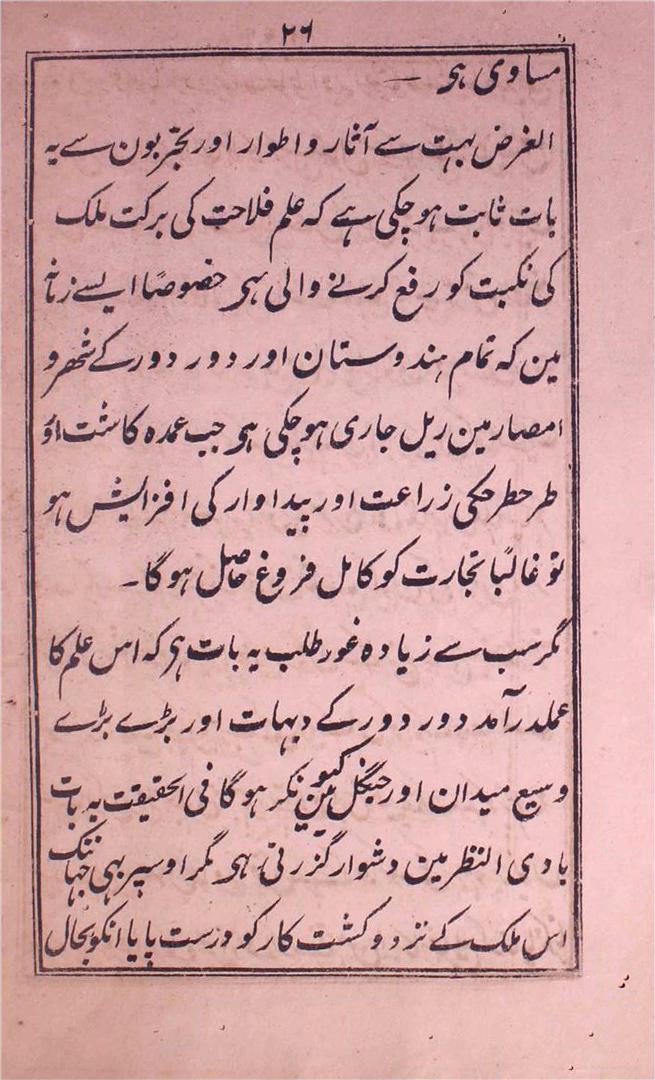 ۲۶
مساوی ہی —
الغرض بہت سے آثار و اطوار اور تجربون سے یہ
بات ثابت ہو چکی ہے کہ علم فلاحت کی برکت ملک
کی نکبت کو رفع کرنے والی ہی خصوصًا ایسے زمانہ
مین کہ تمام ہندوستان اور دور دور کے شہر و
امصار مین ریل جاری ہو چکی ہی جب عمدہ کاشت اور
طرحطرحکی زراعت اور پیداوار کی افزایش ہو
تو غالبًا تجارت کو کامل فروغ حاصل ہو گا۔
مگر سب سے زیادہ غور طلب یہ بات ہی کہ اس علم کا
عملدرآمد دور دور کے دیہات اور بڑے بڑے
وسیع میدان اور جنگل مین کیونکر ہو گا فی الحقیقت یہ بات
بادی النظر مین دشوار گزرتی ہی مگر اوسپر بہی جہانتک
اس ملک کے تردد کشت کار کو درست پایا انکو بحال